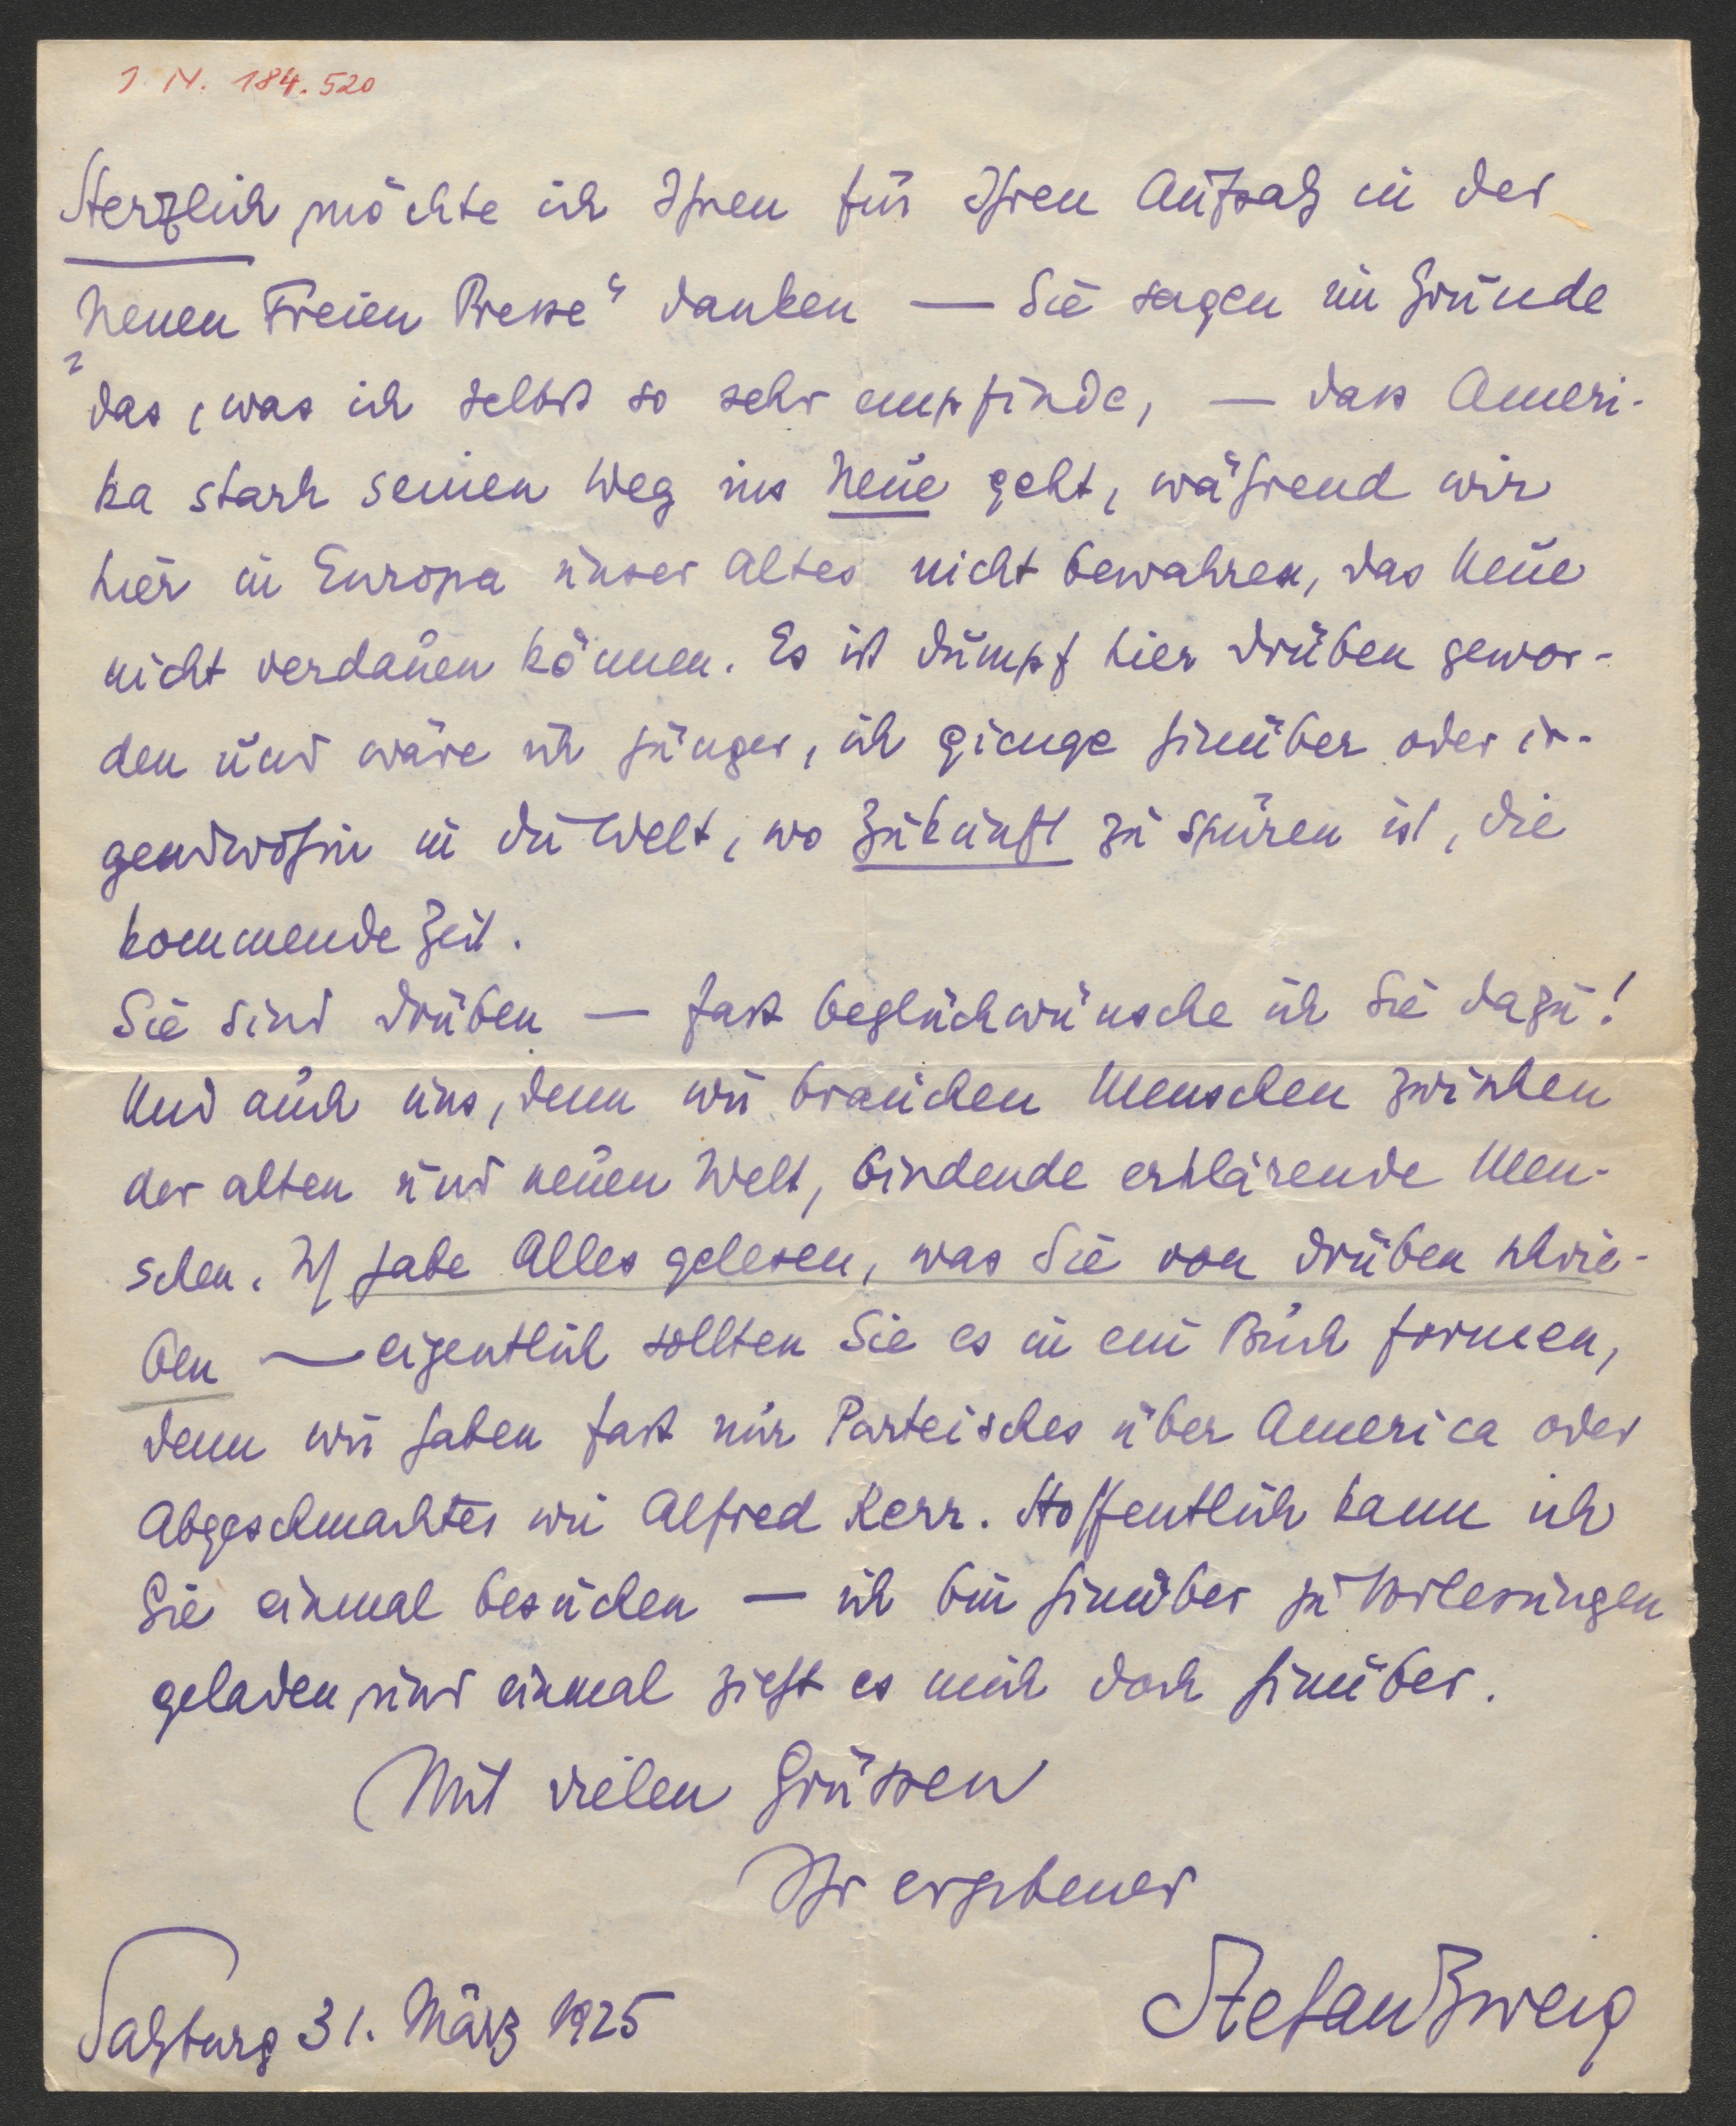 I. N. 184.520
Herzlich möchte ich Ihnen für Ihren Aufsatz in der
„Neuen Freien Presse“ danken — Sie sagen im Grunde
das, was ich selbst so sehr empfinde, — dass Ameri-
ka stark seinen Weg ins Neue geht, während wir
hier in Europa unser Altes nicht bewahren, das Neue
nicht verdauen können. Es ist dumpf hier drüben gewor-
den und wäre ich jünger, ich gienge hinüber oder ir-
gendwohin in die Welt, wo Zukunft zu spüren ist, die
kommende Zeit.
Sie sind drüben — fast beglückwünsche ich Sie dazu!
Und auch uns, denn wir brauchen Menschen zwischen
der alten und neuen Welt, bindende erklärende Men-
schen. Ich habe Alles gelesen, was Sie von drüben schrie-
ben — eigentlich sollten Sie es in ein Buch formen,
denn wir haben fast nur Parteisches über America oder
Abgeschmacktes wie Alfred Kerr. Hoffentlich kann ich
Sie einmal besuchen — ich bin hinüber zu Vorlesungen
geladen und einmal zieht es mich doch hinüber.
Mit vielen Grüssen
Ihr ergebener
Stefan Zweig
Salzburg 31. März 1925